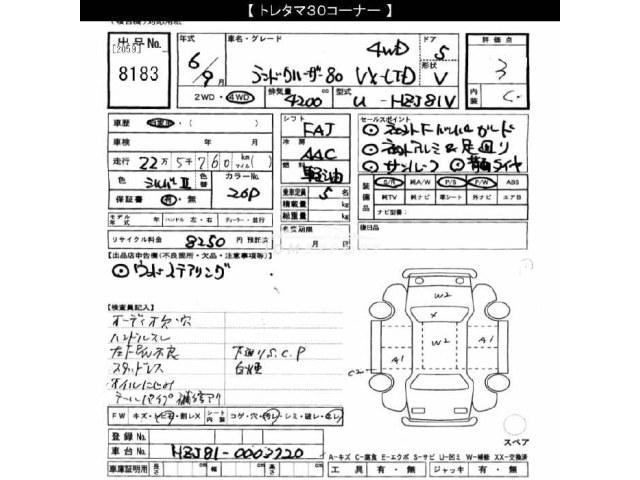 【 トレタマ30コーナー 】
出品No.
[2059]
8183
年式
6/9月
車名・グレード
4WD
ランドクルーザー80 VX-LTD
ドア
5
形状
V
評価点
3
内装
C
2WD・4WD
排気量
4200 cc
型式
U-HZJ81V
車歴
年 月
車検
走行 22万5千760 km
マイル
色
シルバーII
色替
カラーNo.
26P
保証書 有・無
モデル年式 年 ハンドル 左・右 ディーラー・並行
リサイクル料金 8250 円 預託済
シフト
FAT
冷房
AAC
燃料
軽油
乗車定員 5 名
積載量 kg
総重量 kg
名変期限
月 日
セールスポイント
サンルーフ
装備品
S/R 純A/W P/S P/W ABS
純TV 純ナビ 革シート 外ナビ エアB
ナビ型番:
後日品
【出品店申告欄(不良箇所・欠品・注意事項等)】
ウッドステアリング
【検査員記入】
オーディオ欠・穴
ハンドルスレ
スタッドレス
オイルにじみ
下廻りS.C.P
白煙
W2
X
W2
A1
A1
C2
FW キズ・ヒビ・割レX シート内装 コゲ・穴・汚レ・シミ・破レ・スレ
スペア
登録No.
車台No. HZJ81-0003220
車庫証明用 長さ cm 幅 cm 高さ cm
A-キズ C-腐食 E-エクボ S-サビ U-凹ミ W-補修 XX-交換済
工具 有・無 ジャッキ 有・無